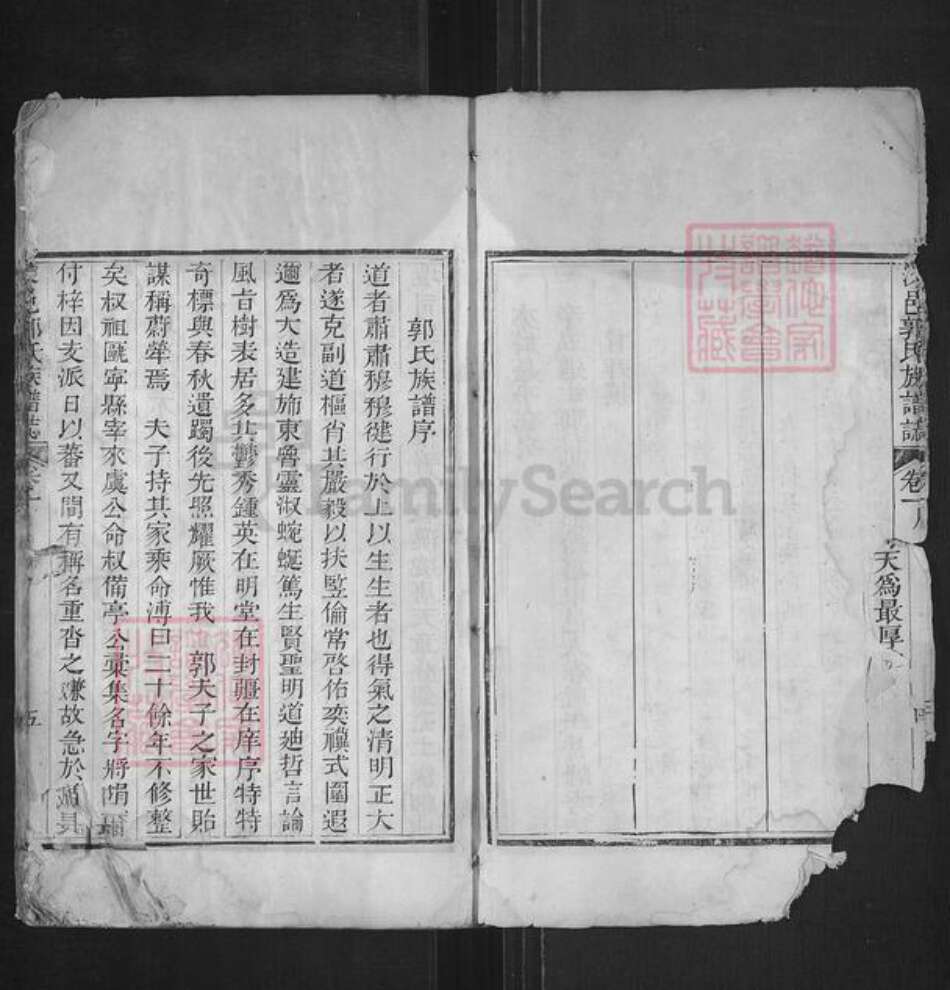 邑郭氏族譜誌
卷一
天為最厚
郭氏族譜序
道者肅肅穆穆健行於上以生生者也得氣之清明正大
者遂克副道樞肖其嚴毅以扶監倫常啓佑奕禩式圍遐
邇為大造建斾東魯靈淑蜿蜒篤生賢聖明道廸哲言論
風旨樹表居多其鬱秀鍾英在明堂在封疆在庠序特特
奇標與春秋遺躅後先照耀厥惟我 郭夫子之家世貽
謀稱蔚犖焉 夫子持其家乘命溥曰三十餘年不修整
矣叔祖甌寧縣宰來虞公命叔備亭公彙集名字將
付梓因支派日以蕃又間有稱名重沓之嫌故急於
邑郭氏族譜誌
五
FamilySearch
譜學會